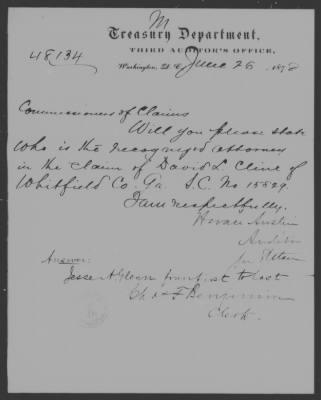 M
Treasury Department,
THIRD AUDITOR'S OFFICE,
48134
Washington, D. C. June 26 1878
Commissioners of Claims
Will you please state
who is the recognized attorney
in the claim of David L. Cline of
Whitfield Co. Ga. S.C. No 15529.
I am respectfully,
Horace Austin
Auditor
Answer:
Jesse A. Glenn from first to last
Chas F Benjamin
Clerk.